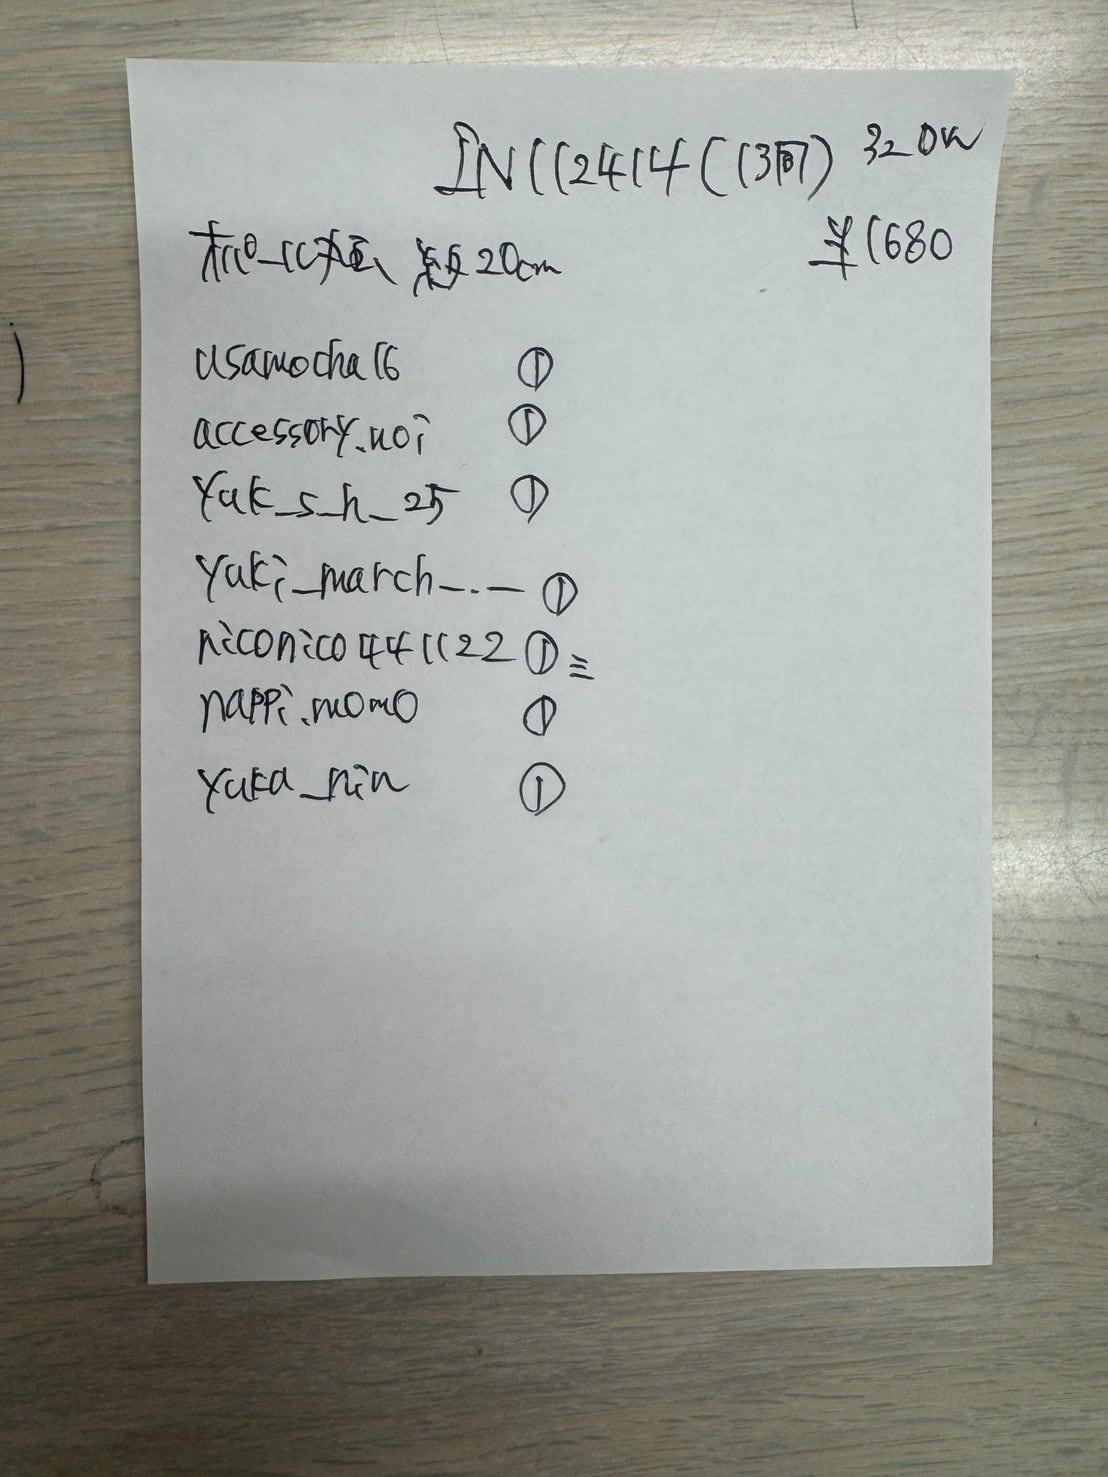 IN112414 (13개) 320W
¥1680
20cm
usamocha16 ①
accessory.noi ①
yuk_s_h_25 ①
yuki_march_._ ①
niconico441122 ①
nappi.momo ①
yuka_nin ①